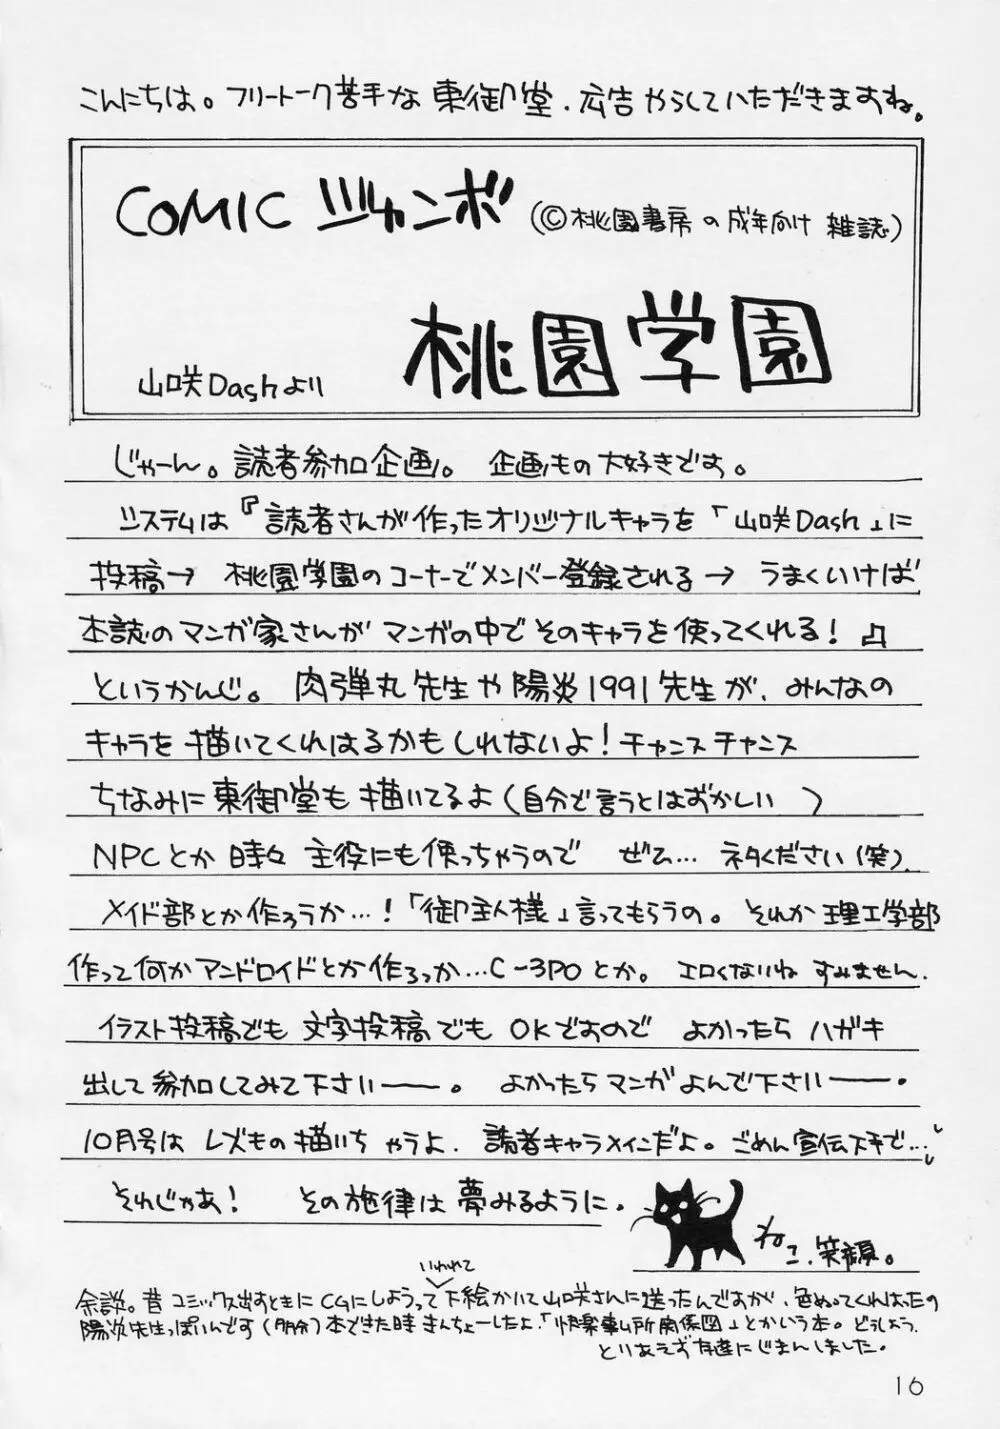 こんにちは。フリートーク苦手な東御堂、広告やらしていただきますね。
COMIC ジャンボ(©桃園書房の成年向け雑誌)
桃園学園
山咲Dashより
じゃーん。読者参加企画。企画もの大好きです。
システムは『読者さんが作ったオリジナルキャラを「山咲Dash」に
投稿→桃園学園のコーナーでメンバー登録される→うまくいけば
本誌のマンガ家さんがマンガの中でそのキャラを使ってくれる!』
というかんじ。肉弾丸先生や陽炎1991先生が、みんなの
キャラを描いてくれはるかもしれないよ!チャンスチャンス
ちなみに東御堂も描いてるよ(自分で言うとはずかしい)
NPCとか時々主役にも使っちゃうのでぜひ…ネタください(笑)
メイド部とか作ろうか…!「御主人様」言ってもらうの。それか理工学部
作って何かアンドロイドとか作ろっか…C-3POとか。エロくないねすみません.
イラスト投稿でも文字投稿でもOKですのでよかったらハガキ
出して参加してみて下さいーー。よかったらマンガよんで下さいーー。
10月号はレズもの描いちゃうよ.読者キャラメインだよ。ごめん宣伝下手で…
それじゃあ!その旋律は夢みるように。
ねこ、笑顔。
いわれて
余談。昔コミックス出すときにCGにしようって下絵かいて山咲さんに送ったんですが、色ぬってくれはったの
陽炎先生っぽいんです(多分)本できた時きんちょーしたよ、「快楽事ム所関係図」とかいう本。どうしよう、
とりあえず友達にじまんしました。
16